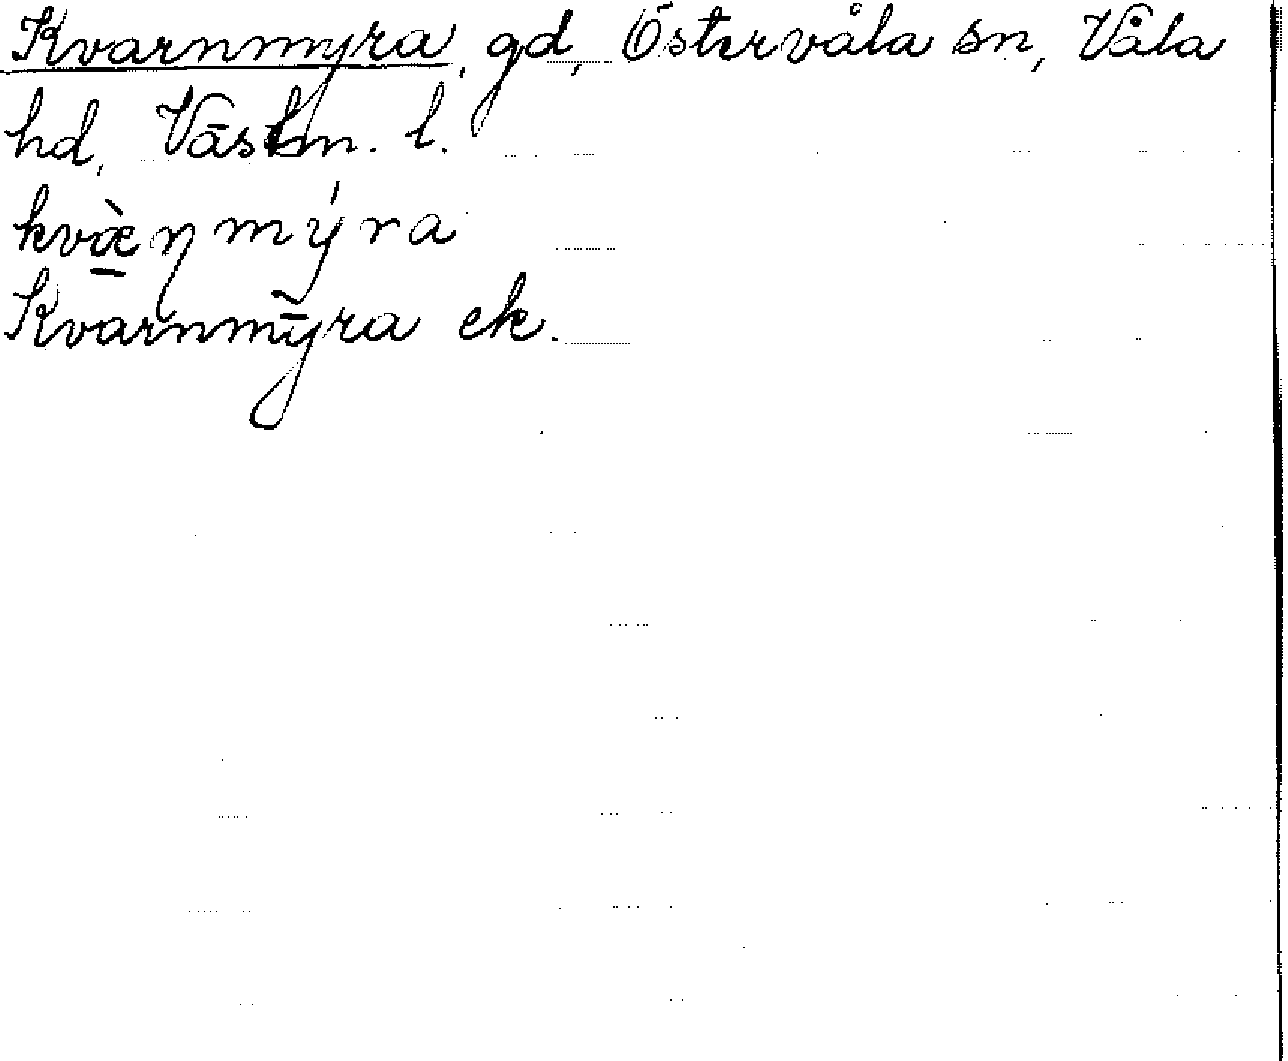 Kvarnmyra, gd, Östervåla sn, Våla
hd, Västm. l.
kvæ̀ɳmýra
Kvarnmyra ek.